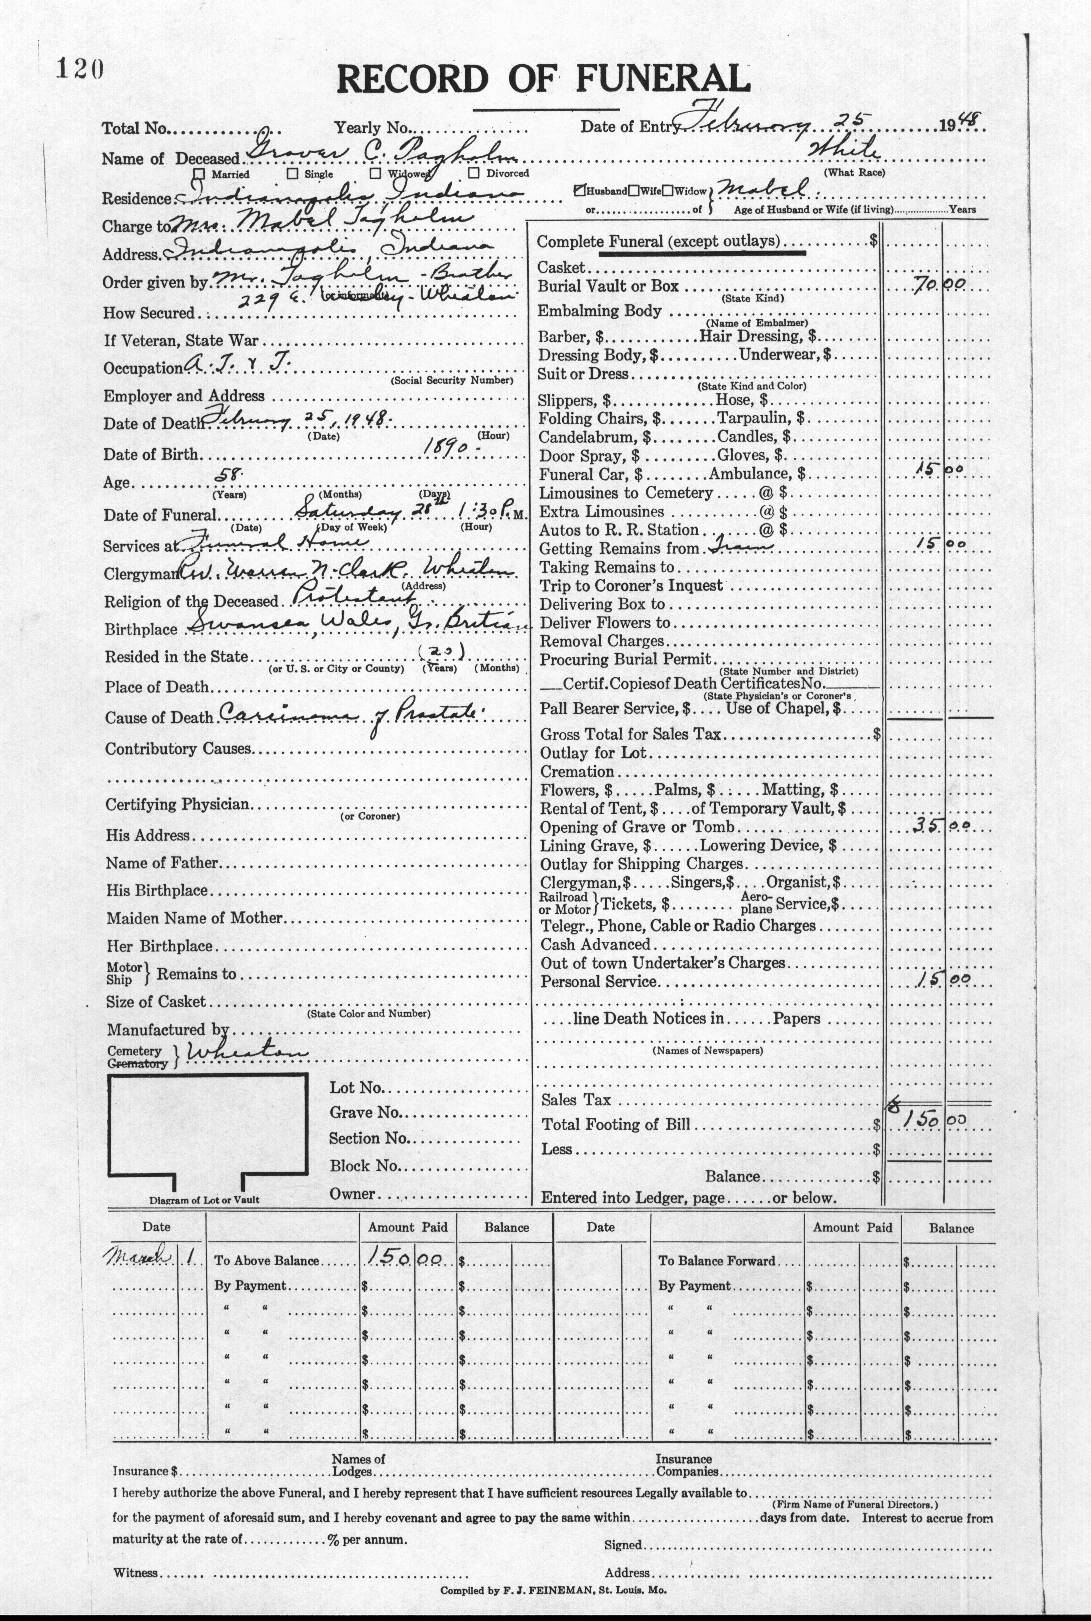 120
RECORD OF FUNERAL
Total No. Yearly No. Date of Entry February 25 1948
Name of Deceased Grover C. Tagholm White
☐ Married ☐ Single ☐ Widowed ☐ Divorced (What Race)
Residence Indianapolis Indiana ☑Husband☐Wife☐Widow } Mabel
or of } Age of Husband or Wife (if living) Years
Charge to Mrs. Mabel Tagholm
Address Indianapolis, Indiana
Order given by Mr. Tagholm - Brother
229 E. - Wheaton
How Secured
If Veteran, State War
Occupation A. T. & T.
(Social Security Number)
Employer and Address
Date of Death February 25, 1948.
(Date) (Hour)
Date of Birth 1890 -
Age 58
(Years) (Months) (Days)
Date of Funeral Saturday 28th 1:30 P. M.
(Date) (Day of Week) (Hour)
Services at Funeral Home
Clergyman Rev. Warren N. Clark. Wheaton
(Address)
Religion of the Deceased Protestant
Birthplace Swansea, Wales, Gr. Britian
Resided in the State (20)
(or U. S. or City or County) (Years) (Months)
Place of Death
Cause of Death Carcinoma of Prostate
Contributory Causes
Certifying Physician
(or Coroner)
His Address
Name of Father
His Birthplace
Maiden Name of Mother
Her Birthplace
Motor
Ship } Remains to
Size of Casket
(State Color and Number)
Manufactured by
Cemetery
Crematory } Wheaton
Lot No.
Grave No.
Section No.
Block No.
Owner
Diagram of Lot or Vault
Complete Funeral (except outlays) $
Casket
Burial Vault or Box 70 00
(State Kind)
Embalming Body
(Name of Embalmer)
Barber, $ Hair Dressing, $
Dressing Body, $ Underwear, $
Suit or Dress
(State Kind and Color)
Slippers, $ Hose, $
Folding Chairs, $ Tarpaulin, $
Candelabrum, $ Candles, $
Door Spray, $ Gloves, $
Funeral Car, $ Ambulance, $ 15 00
Limousines to Cemetery @ $
Extra Limousines @ $
Autos to R. R. Station @ $
Getting Remains from Train 15 00
Taking Remains to
Trip to Coroner's Inquest
Delivering Box to
Deliver Flowers to
Removal Charges
Procuring Burial Permit
(State Number and District)
Certif. Copies of Death Certificates No.
(State Physician's or Coroner's
Pall Bearer Service, $ Use of Chapel, $
Gross Total for Sales Tax $
Outlay for Lot
Cremation
Flowers, $ Palms, $ Matting, $
Rental of Tent, $ of Temporary Vault, $
Opening of Grave or Tomb 35 00
Lining Grave, $ Lowering Device, $
Outlay for Shipping Charges
Clergyman, $ Singers, $ Organist, $
Railroad
or Motor } Tickets, $ Aero-
plane Service, $
Telegr., Phone, Cable or Radio Charges
Cash Advanced
Out of town Undertaker's Charges
Personal Service 15 00
line Death Notices in Papers
(Names of Newspapers)
Sales Tax
Total Footing of Bill $ 150 00
Less $
Balance $
Entered into Ledger, page or below.
Date Amount Paid Balance Date Amount Paid Balance
March 1 To Above Balance 150 00 $ To Balance Forward $
By Payment $ $ By Payment $ $
" " $ $ " " $ $
" " $ $ " " $ $
" " $ $ " " $ $
" " $ $ " " $ $
" " $ $ " " $ $
" " $ $ " " $ $
Insurance $ Names of Lodges Insurance Companies
I hereby authorize the above Funeral, and I hereby represent that I have sufficient resources Legally available to
(Firm Name of Funeral Directors.)
for the payment of aforesaid sum, and I hereby covenant and agree to pay the same within days from date. Interest to accrue from
maturity at the rate of % per annum.
Signed
Witness Address
Compiled by F. J. FEINEMAN, St. Louis, Mo.